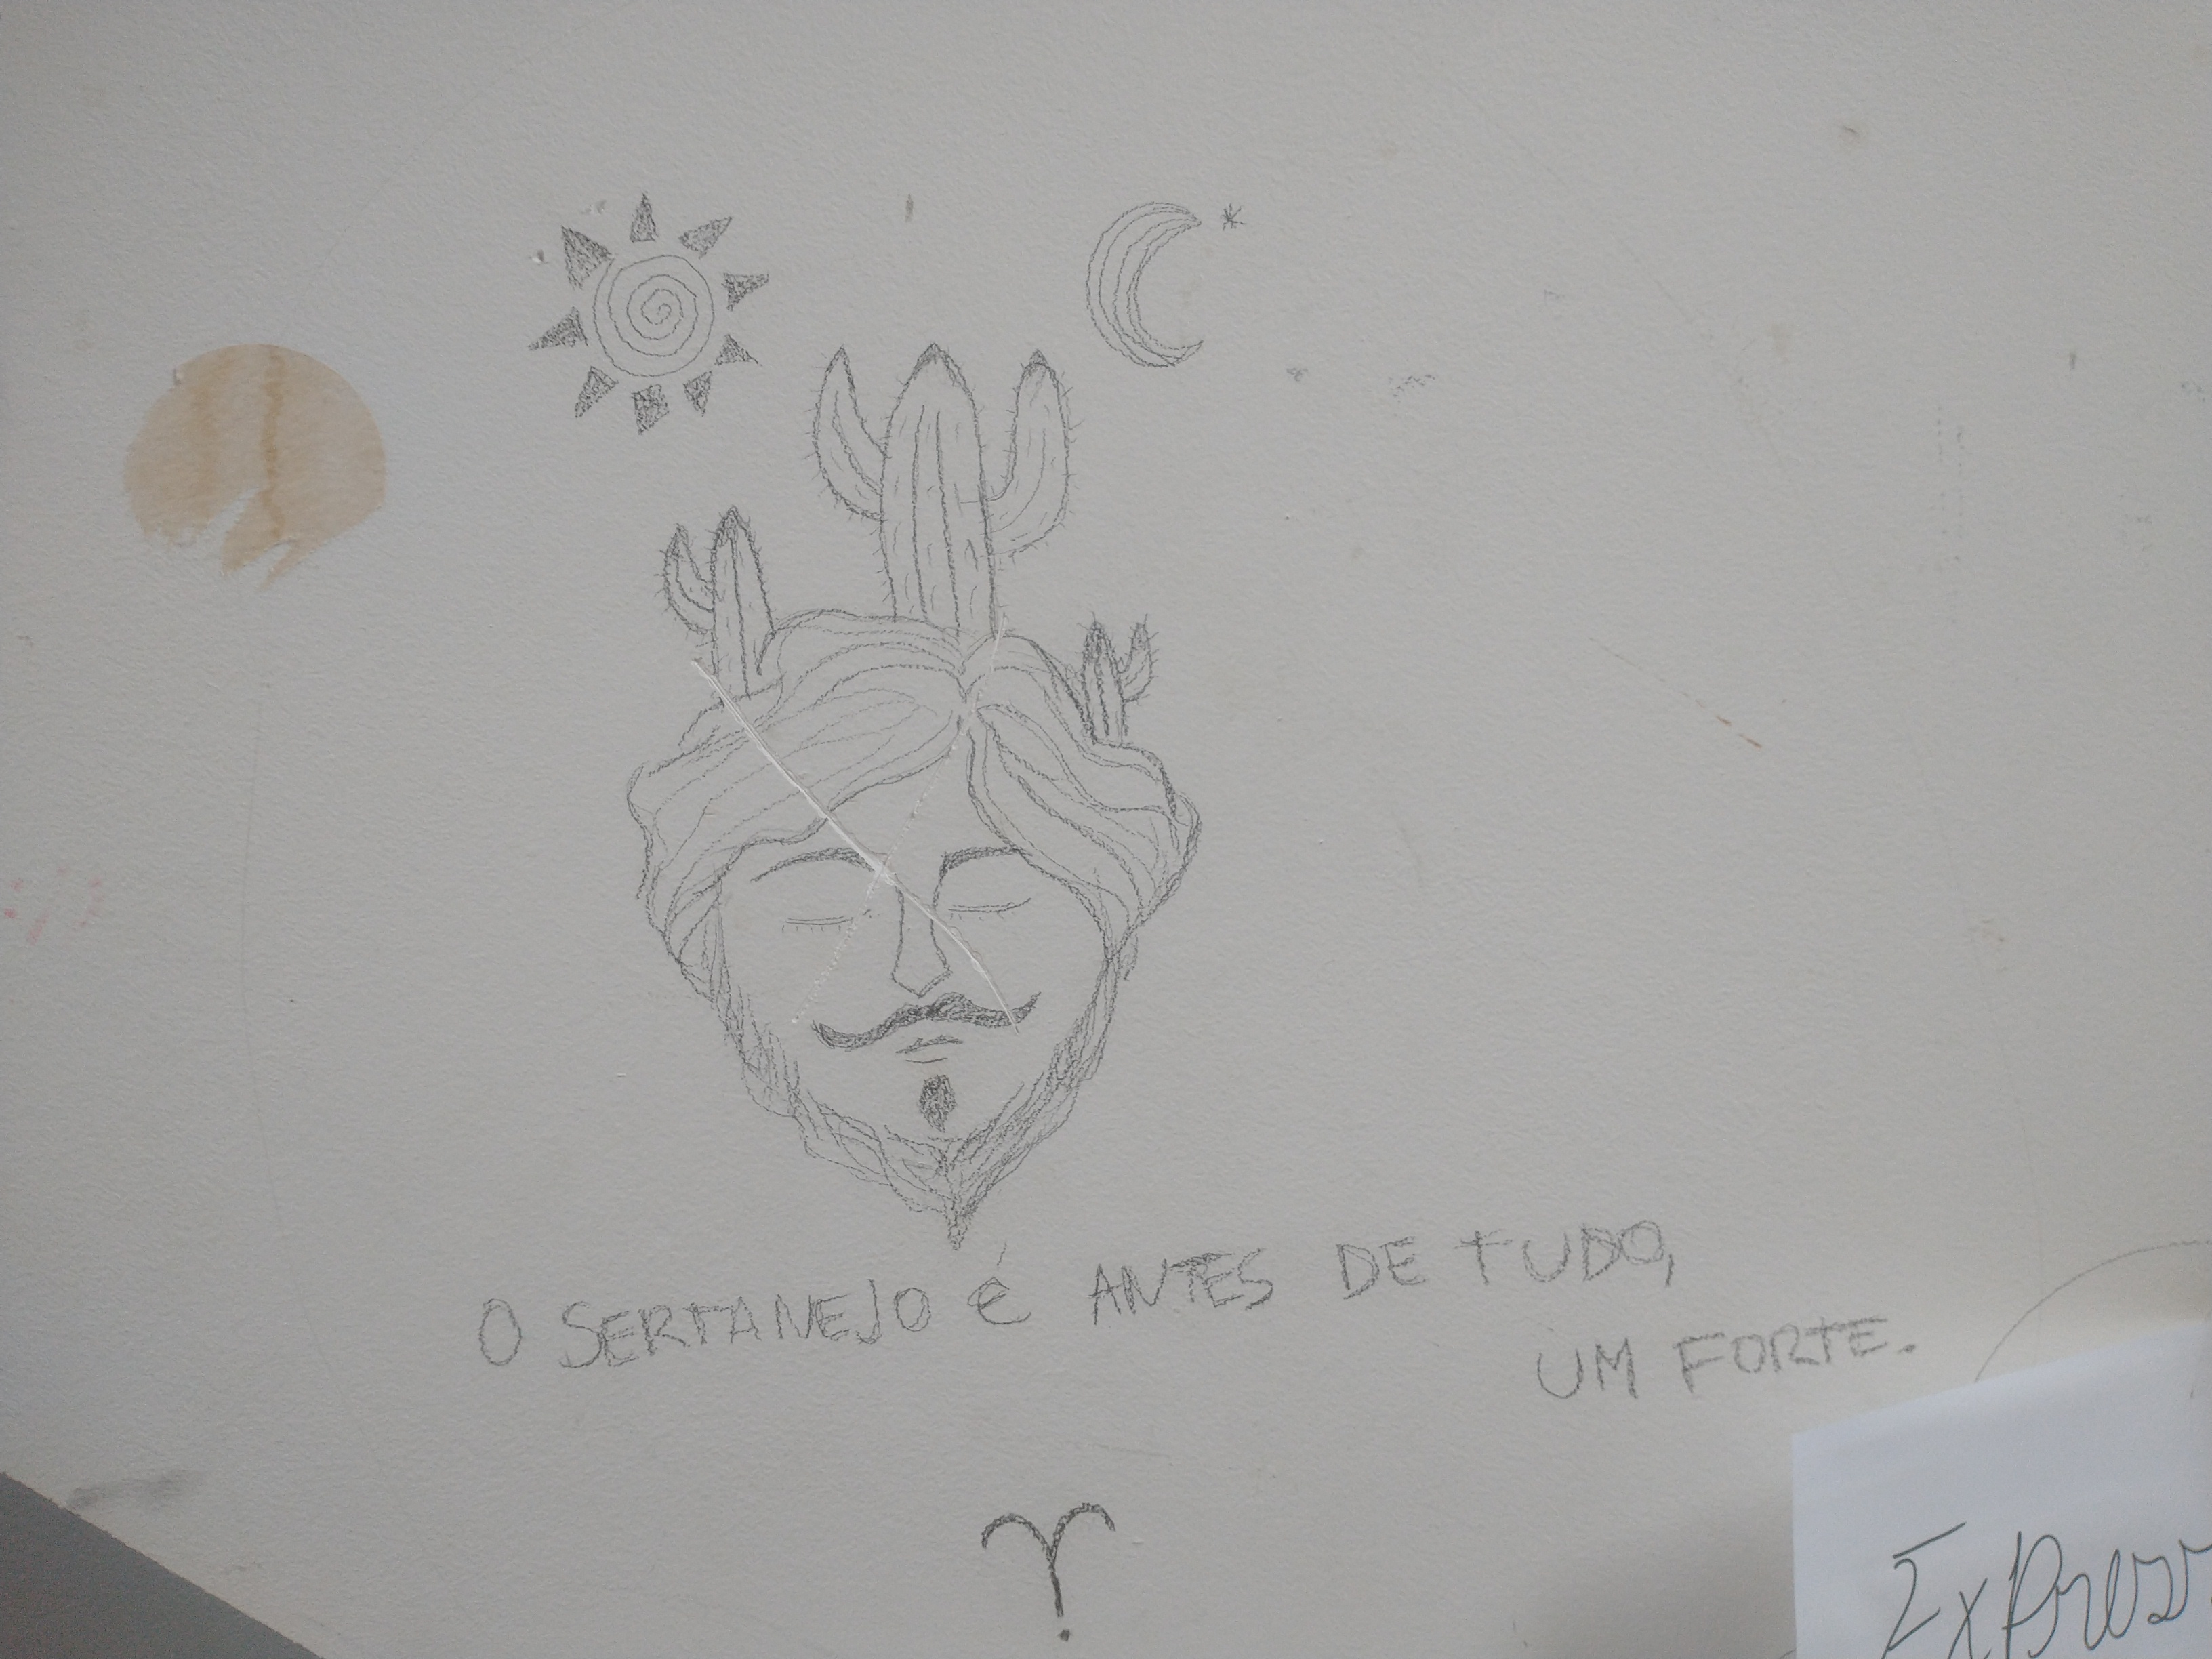 O SERTANEJO é ANTES DE TUDO,
UM FORTE.